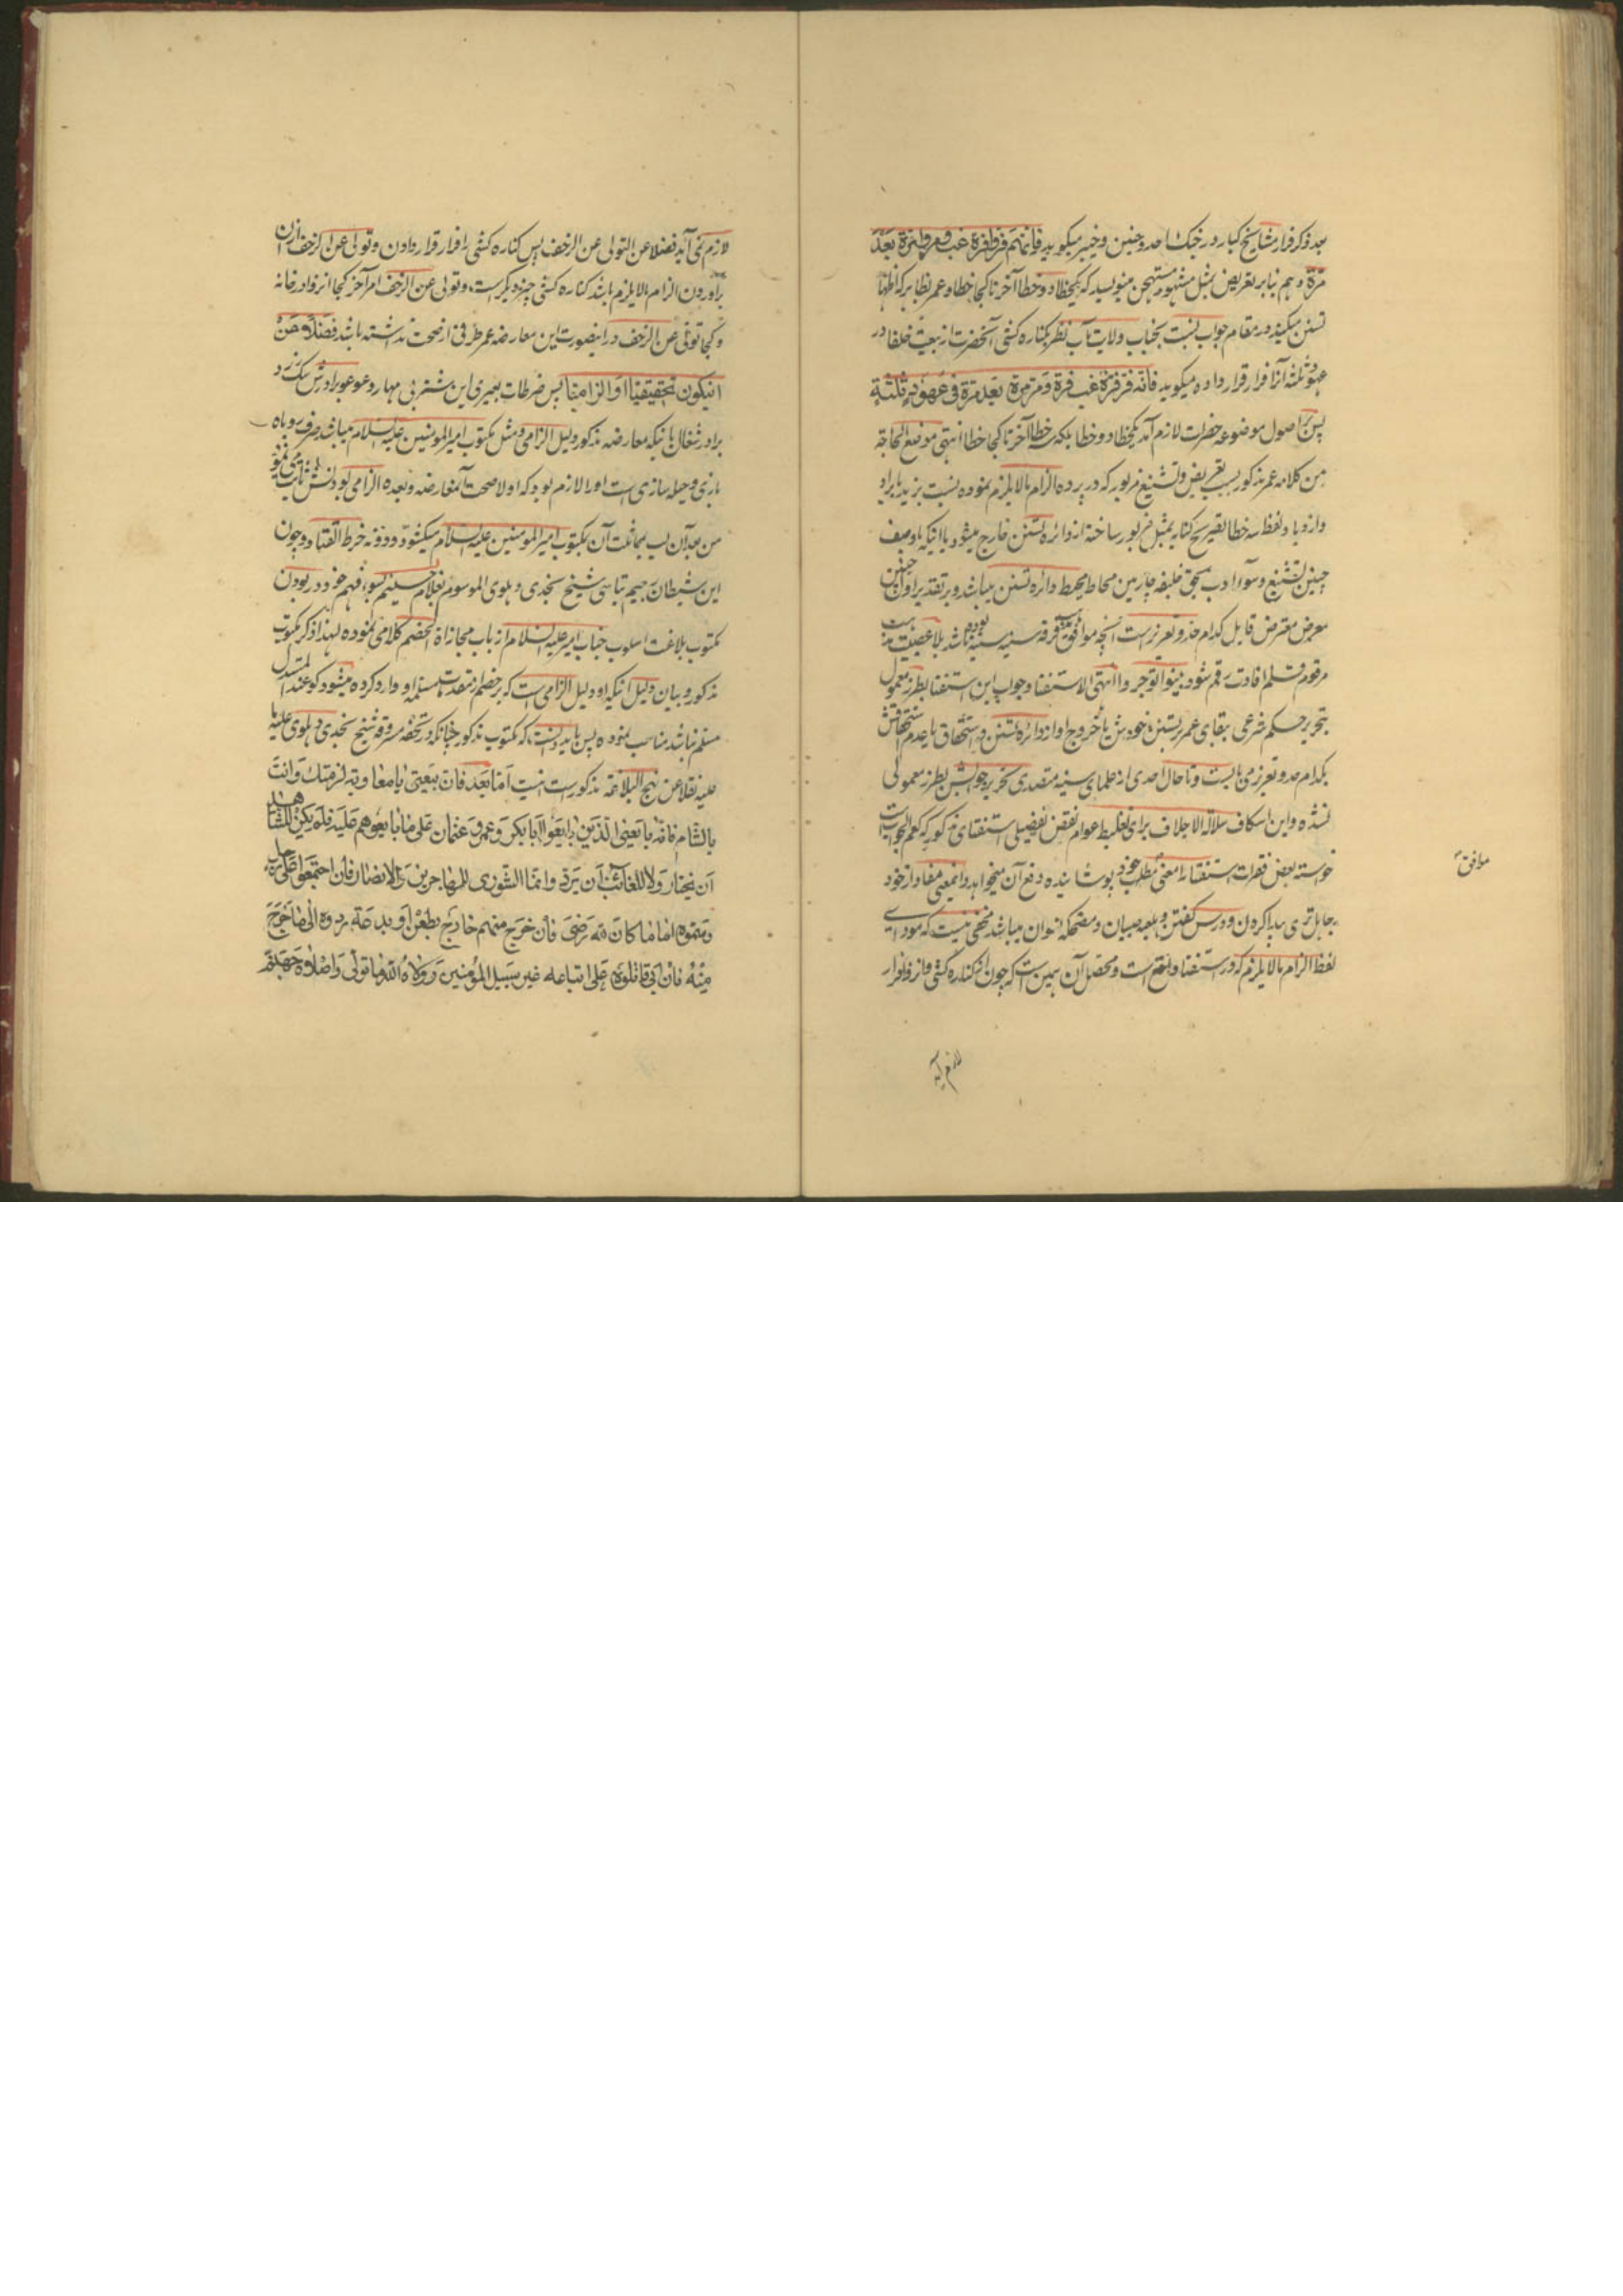 بعد ذکر فرار مشایخ کبار در جنگ احد و حنین و خیبر میگوید فانهم فروا فرة غب فرة و مروا مرة بعد
مرة و هم بنابر تعریض بمثل مشهور مستهجن مینویسد که یکخطا دو خطا آخر تا کجا خطا و عمر بظاهر که اظهار
تسنن میکند در مقام جواب نسبت بجناب ولایت مآب نظر بکناره کشی آنحضرت از بیعت خلفا در
عهود ثلثه آنرا فرار قرار داده میگوید فانه فر فرة غب فرة و مر مرة بعد مرة فی عهود ثلثة
پس بر اصول موضوعه حضرات لازم آمد یکخطا دو خطا بلکه سه خطا آخر تا کجا خطا انتهی موضع الحاجة
من کلامه عمر مذکور بسبب تعریض و تشنیع مزبور که در پرده الزام مالایلزم نموده نسبت بزید یا براو
وارد یا و لفظ سه خطا بتصریح کنایه بمثل مزبور ساخته از دائره تسنن خارج میشود یا اینکه باوصف
چنین تشنیع و سوء ادب بحق خلیفه چارمین محاط محیط دائره تسنن میباشد و بر تقدیر اول چنین
معرض معترض قابل کدام حد و تعزیر است آنچه موافق مذهب فرقه سنیه سنیه بوده باشد بلا عصبیت
مرقوم قلم افادت رقم شود بینوا توجروا انتهی الاستفتا و جواب این استفتا بطرز معمول
بتحریر حکم شرعی ببقای عمر بر تسنن خودش یا خروج او از دائره تسنن و استحقاق یا عدم استحقاقش
بکدام حد و تعزیر می بایست و تا حال احدی از علمای سنیه متصدی تحریر جوابش بطرز معمولی
نشده و این اسکاف سلالة الاجلاف برای تغلیط عوام نقض تفصیلی استفتای مذکور که نعم الجواب است
خواسته بعض فقرات استفتا را معنی مطلب خود پوشانیده دفع آن میخواهد و اینمعنی مفاد از خود
جاهل تری پیدا کردن و درس گفتن و ملعبه صبیان و مضحکه نسوان میباشد مخفی نیست که مودای
لفظ الزام مالایلزم که در استفتا واقع است و محصل آن همین است که چون از کناره کشی و انزوا فرار
موافق
لازم آید
لازم نمی آید فضلا عن التولی عن الزحف پس کناره کشی را فرار قرار دادن و تولی عن الزحف ازان
برآوردن الزام مالایلزم باشد کناره کشی چیز دیگر است و تولی عن الزحف امر آخر کجا انزوا در خانه
و کجا تولی عن الزحف در اینصورت این معارضه عمر طرفی از صحت نداشته باشد فضلا من
انیکون تحقیقیا او الزامیا پس ضرطات بعیری این شتر بی مهار و عوعو برادرش سگ زرد
برادر شغال باینکه معارضه مذکور دلیل الزامی و مثل مکتوب امیر المومنین علیه السلام میباشد صرف روباه
بازی و حیله سازی است اورا لازم بود که اولا صحت آنمعارضه و بعده الزامی بودنش ثابت می نمود
من بعد آن لب بمماثلت آن بمکتوب امیر المومنین علیه السلام میکشود و دونه خرط القتاد و چون
این شیطان رجیم بتاسی شیخ نجدی دهلوی الموسوم بغلام حسینم بسوء فهم خود در بودن
مکتوب بلاغت اسلوب جناب امیر علیه السلام از باب مجازاة الخصم کلامی نموده لهذا ذکر مکتوب
مذکور و بیان دلیل اینکه او دلیل الزامی است که بر خصم از مقدمات مسلمه او وارد کرده میشود کو عند المستدل
مسلم نباشد مناسب نموده پس باید دانست که مکتوب مذکور چنانکه در تحفه مسروقه شیخ نجدی دهلوی علیه ما
علیه نقلا عن نهج البلاغة مذکور است اینست اما بعد فان بیعتی یا معاویة لزمتك و انت
بالشام فانه بایعنی الذین بایعوا ابا بکر و عمر و عثمان علی ما بایعوهم علیه فلم یکن للشاهد
ان یختار و لا للغائب ان یرد و انما الشوری للمهاجرین و الانصار فان اجتمعوا علی رجل
و سموه اماما کان لله رضی فان خرج منهم خارج بطعن او بدعة ردوه الی ما خرج
منه فان ابی قاتلوه علی اتباعه غیر سبیل المؤمنین و ولاه الله ما تولی و اصلاه جهنم